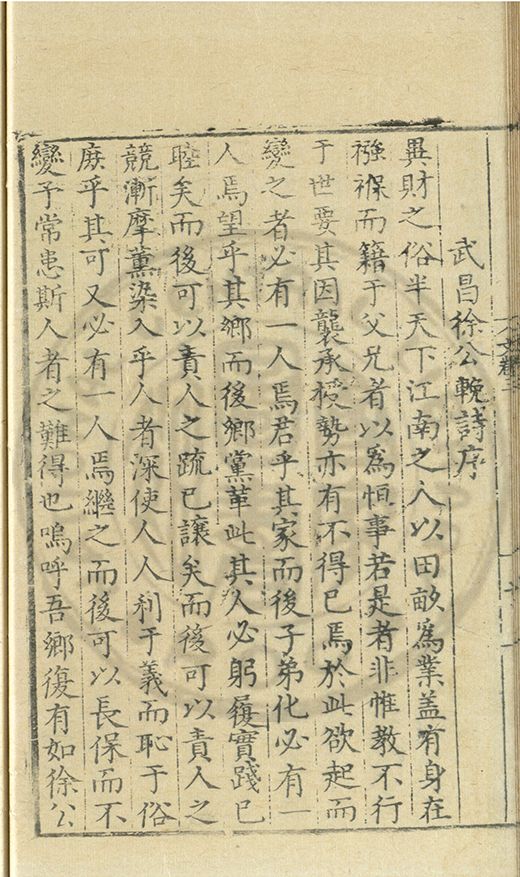 武昌徐公輓詩序
異財之俗半天下江南之人以田畝爲業盖有身在
襁褓而籍于父兄者以爲恒事若是者非惟教不行
于世要其因襲承授勢亦有不得已焉於此欲起而
變之者必有一人焉君乎其家而後子弟化必有一
人焉望乎其鄉而後鄉黨革此其人必躬履實踐已
睦矣而後可以責人之疏已讓矣而後可以責人之
競漸摩薰染入乎人者深使人人利于義而恥于俗
庶乎其可又必有一人焉繼之而後可以長保而不
變予常患斯人者之難得也嗚呼吾鄉復有如徐公